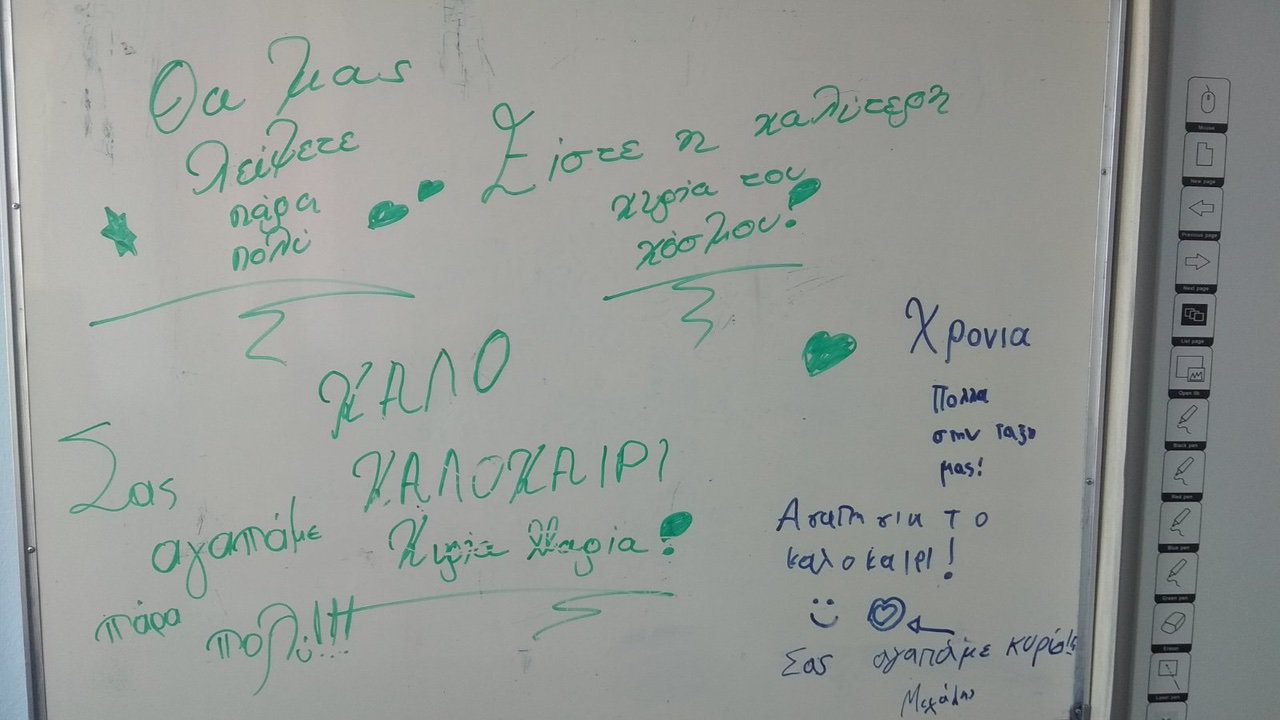 Θα μας
λείψετε
πάρα
πολύ
Είστε η καλύτερη
κυρία του
κόσμου!
ΚΑΛΟ
ΚΑΛΟΚΑΙΡΙ
Κυρία Μαρία!
Σας
αγαπάμε
πάρα
πολύ!!!
Χρονια
Πολλα
στην ταξη
μας!
Αγαπη για το
καλοκαιρι!
Σας αγαπάμε κυρία!!
Mouse
New page
Previous page
Next page
List page
Open lib
Black pen
Red pen
Blue pen
Green pen
Eraser
Laser pen